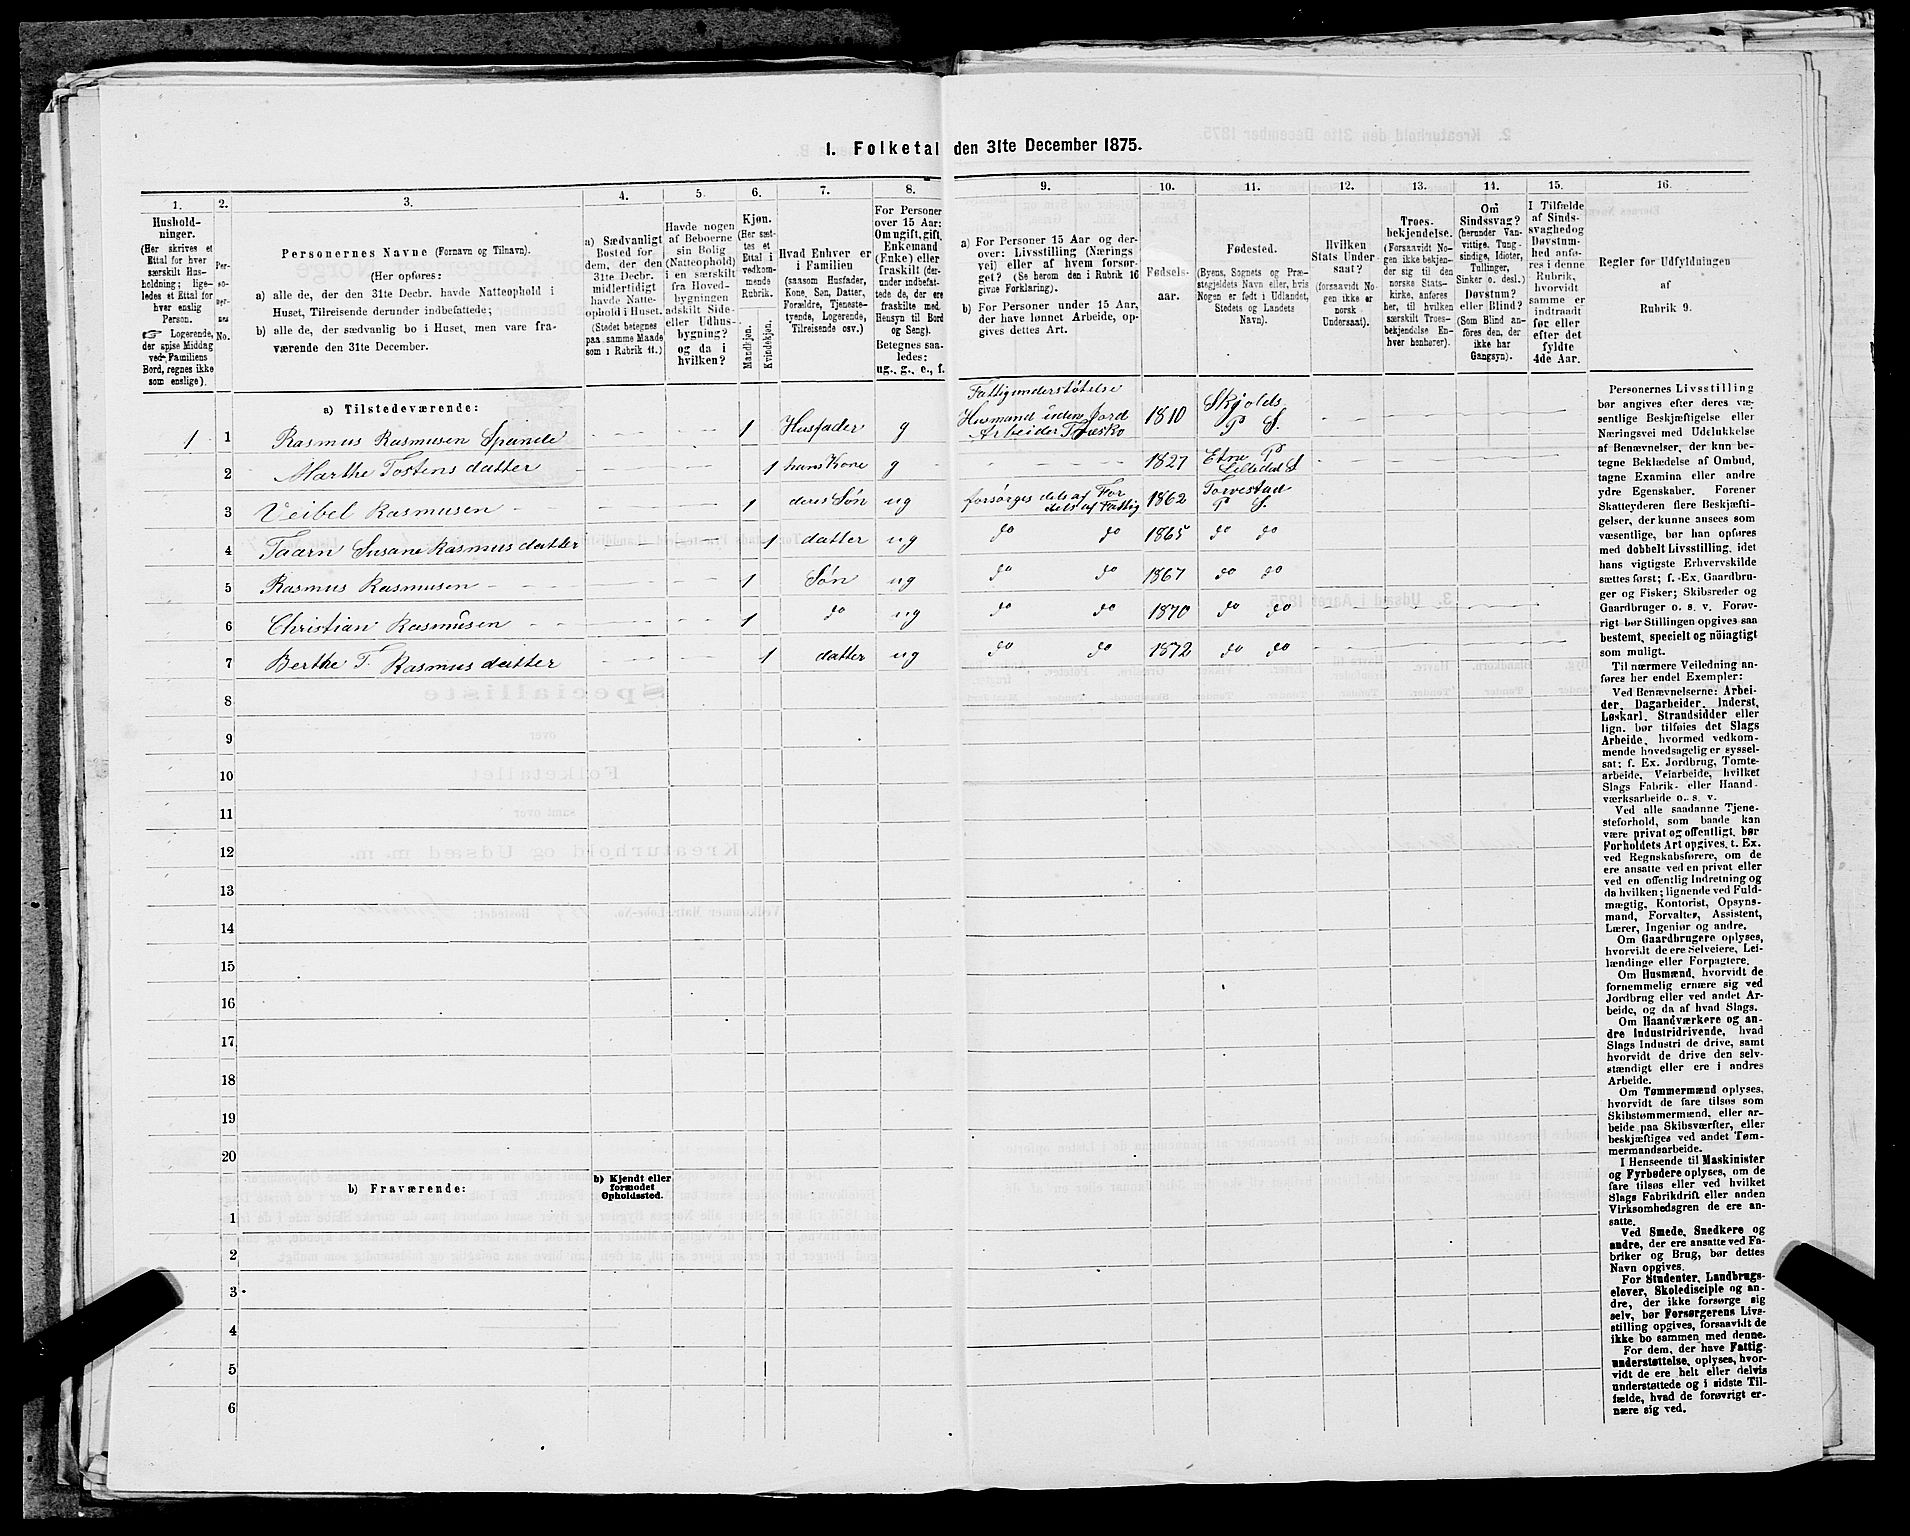 1. Folketal den 31te December 1875.
1.
2.
3.
4.
5.
6.
7.
8.
9.
10.
11.
12.
13.
14.
15.
16.
Hushold-
ninger.
(Her skrives et
Ettal for hver
særskilt Hus-
holdning; lige-
ledes et Ettal for
hver enslig
Person.
☞ Logerende,
der spise Middag
ved Familiens
Bord, regnes ikke
som enslige).
Per-
so-
ner-
nes
No.
Personernes Navne (Fornavn og Tilnavn).
(Her opføres:
a) alle de, der den 31te Decbr. havde Natteophold i
Huset, Tilreisende derunder indbefattede;
b) alle de, der sædvanlig bo i Huset, men vare fra-
værende den 31te December.
a) Sædvanligt
Bosted for
dem, der den
31te Decbr.
midlertidigt
havde Natte-
ophold i Huset.
(Stedet betegnes
paa samme Maade
som i Rubrik 11.)
Havde nogen
af Beboerne
sin Bolig
(Natteophold)
i en særskilt
fra Hoved-
bygningen
adskilt Side-
eller Udhus-
bygning?
og da i
hvilken?
Kjøn.
(Her sæt-
tes et
Ettal i
vedkom-
mende
Rubrik.
Mandkjøn.
Kvindekjøn.
Hvad Enhver er
i Familien
(saasom Husfader,
Kone, Søn, Datter,
Forældre, Tjeneste-
tyende, Logerende,
Tilreisende osv.)
For Personer
over 15 Aar:
Om ugift, gift,
Enkemand
(Enke) eller
fraskilt (der-
under indbefat-
tede de, der ere
fraskilte med
Hensyn til Bord
og Seng).
Betegnes saa-
ledes:
ug., g., e., f.
a) For Personer 15 Aar og der-
over: Livsstilling (Nærings
vei) eller af hvem forsør-
get? (Se herom den i Rubrik 16
givne Forklaring).
b) For Personer under 15 Aar,
der have lønnet Arbeide, op-
gives dettes Art.
Fødsels-
aar.
Fødested.
(Byens, Sognets og Præ-
stegjeldets Navn eller, hvis
Nogen er født i Udlandet,
Stedets og Landets
Navn).
Hvilken
Stats Under-
saat?
(forsaavidt No-
gen ikke er
norsk
Undersaat).
Troes-
bekjendelse.
(Forsaavidt No-
gen ikke bekjen-
der sig til den
norske Stats-
kirke, anføres
her, til hvilken
særskilt Troes-
bekjendelse En-
hver henhører).
Om
Sindssvag?
(herunder Van-
vittige, Tung-
sindige, Idioter,
Tullinger,
Sinker o. desl.)
Døvstum?
eller Blind?
(Som Blind an-
føres den, der
ikke har
Gangsyn).
I Tilfælde
af Sinds-
svaghed og
Døvstum-
hed anfø-
res i denne
Rubrik,
hvorvidt
samme er
indtraadt
før eller
efter det
fyldte
4de Aar.
Regler for Udfyldningen
af
Rubrik 9.
a) Tilstedeværende:
Fattigunderstøtelse
1 1 Rasmus Rasmusen Spande 1 Husfader g Husmand uden Jord 1810 Skjolds
Arbeider Træsko P S.
2 Marthe Tostens datter 1 hans Kone g 1827 Etne P
Lilledal S
3 Veibel Rasmusen 1 deres Søn ug forsørges dels af For 1862 Torvestad
dels af Fattig P S.
4 Taarn Susane Rasmus datter 1 datter ug do do 1865 do do
5 Rasmus Rasmusen 1 Søn ug do do 1867 do do
6 Christian Rasmusen 1 do ug do do 1870 do do
7 Berthe T. Rasmus datter 1 datter ug do do 1872 do do
8
9
10
11
12
13
14
15
16
17
18
19
20
b) Fraværende:
b) Kjendt eller
formodet
Opholdssted.
1
2
3
4
5
6
Personernes Livsstilling
bør angives efter deres væ-
sentlige Beskjæftigelse eller
Næringsvei med Udelukkelse
af Benævnelser, der kun be-
tegne Beklædelse af Ombud,
tagne Examina eller andre
ydre Egenskaber. Forener
Skatteyderen flere Beskjæfti-
gelser, der kunne ansees som
væsentlige, bør han opføres
med dobbelt Livsstilling, idet
hans vigtigste Erhvervskilde
sættes først; f. Ex. Gaardbru-
ger og Fisker; Skibsreder og
Gaardbruger o. s. v. Forøv-
rigt bør Stillingen opgives saa
bestemt, specielt og nöiagtigt
som muligt.
Til nærmere Veiledning an-
føres her endel Exempler:
Ved Benævnelserne: Arbei-
der, Dagarbeider, Inderst,
Løskarl, Strandsidder eller
lign. bør tilføies det Slags
Arbeide, hvormed vedkom-
mende hovedsagelig er syssel-
sat; f. Ex. Jordbrug, Tomte-
arbeide, Veiarbeide, hvilket
Slags Fabrik- eller Haand-
værksarbeide o. s. v.
Ved alle saadanne Tjene-
steforhold, som baade kan
være privat og offentligt, bør
Forholdets Art opgives, t. Ex.
ved Regnskabsførere, om de
ere ansatte ved en privat eller
ved en offentlig Indretning og
da hvilken; lignende ved Fuld-
mægtig, Kontorist, Opsyns-
mand, Forvalter, Assistent,
Lærer, Ingeniør og andre.
Om Gaardbrugere oplyses,
hvorvidt de ere Selveiere, Lei-
lændinge eller Forpagtere.
Om Husmænd, hvorvidt de
fornemmelig ernære sig ved
Jordbrug eller ved andet Ar-
beide, og da af hvad Slags.
Om Haandværkere og an-
dre Industridrivende, hvad
Slags Industri de drive, samt
hvorvidt de drive den selv-
stændigt eller ere i andres
Arbeide.
Om Tømmermænd oplyses,
hvorvidt de fare tilsøs som
Skibstømmermænd, eller ar-
beide paa Skibsværfter, eller
beskjæftiges ved andet Tøm-
mermandsarbeide.
I Henseende til Maskinister
og Fyrbødere oplyses, om de
fare tilsøs eller ved hvilket
Slags Fabrikdrift eller anden
Virksomhedsgren de ere an-
satte.
Ved Smede, Snedkere og
andre, der ere ansatte ved Fa-
briker og Brug, bør dettes
Navn opgives.
For Studenter, Landbrugs-
elever, Skoledisciple og an-
dre, der ikke forsørge sig
selv, bør Forsørgerens Livs-
stilling opgives, forsaavidt de
ikke bo sammen med denne.
For dem, der have Fattig-
understøttelse, oplyses, hvor-
vidt de ere helt eller delvis
understøttede og i sidste Til-
fælde, hvad de forøvrigt er-
nære sig ved.